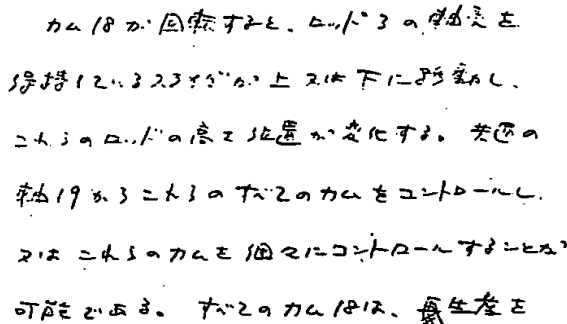 カム18が回転すると、ロッド3の軸受を
保持しているスライドが上又は下に移動し、
これらのロッドの高さ位置が変化する。共通の
軸19からこれらのすべてのカムをコントロールし、
又はこれらのカムを個々にコントロールすることが
可能である。すべてのカム18は、再生産を